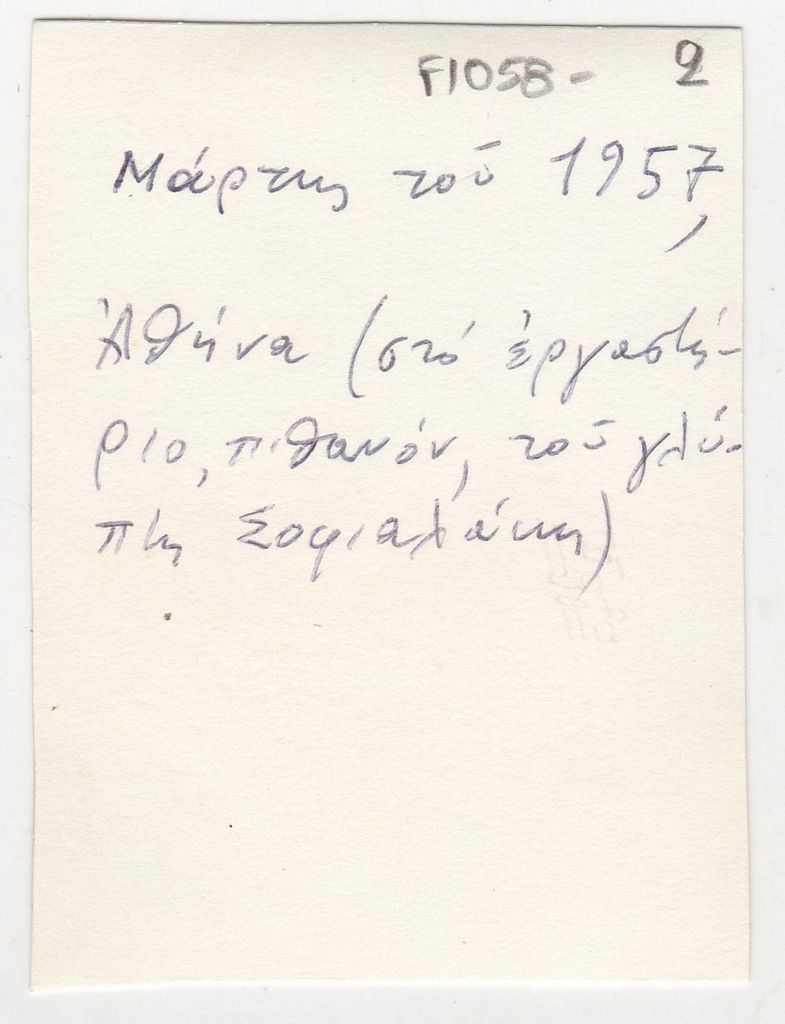 F1058- 2
Μάρτης τοῦ 1957,
Ἀθήνα (στό ἐργαστή-
ριο, πιθανόν, τοῦ γλύ-
πτη Σοφιαλάκη)